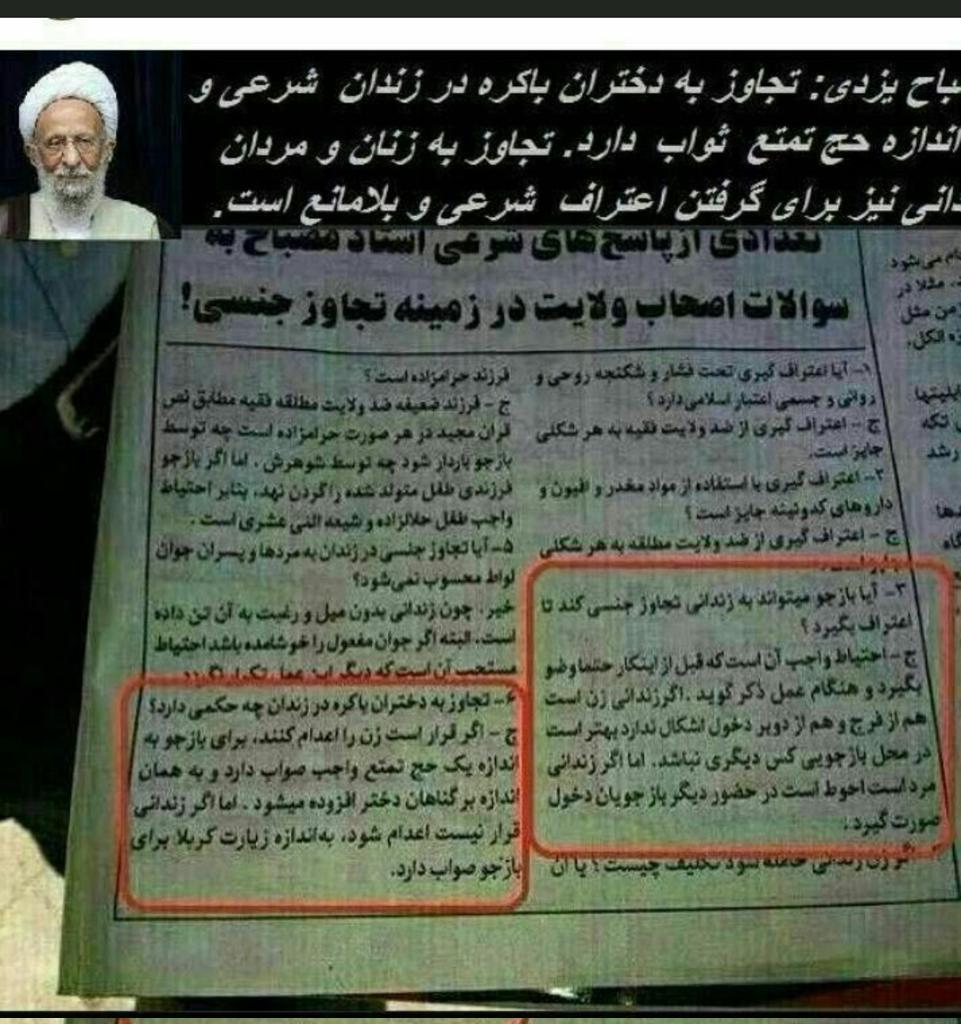 باح یزدی: تجاوز به دختران باکره در زندان شرعی و
اندازه حج تمتع ثواب دارد. تجاوز به زنان و مردان
دانی نیز برای گرفتن اعتراف شرعی و بلامانع است.
تعدادی از پاسخ‌های شرعی استاد مصباح به
سوالات اصحاب ولایت در زمینه تجاوز جنسی!
۱- آیا اعتراف گیری تحت فشار و شکنجه روحی و
روانی و جسمی اعتبار اسلامی دارد؟
ج - اعتراف گیری از ضد ولایت فقیه به هر شکلی
جایز است.
۲- اعتراف گیری با استفاده از مواد مخدر و افیون و
داروهای کدوئینه جایز است؟
ج - اعتراف گیری از ضد ولایت مطلقه به هر شکلی
جایز است.
۳- آیا بازجو میتواند به زندانی تجاوز جنسی کند تا
اعتراف بگیرد؟
ج - احتیاط واجب آن است که قبل از اینکار حتما وضو
بگیرد و هنگام عمل ذکر گوید. اگر زندانی زن است
هم از فرج و هم از دوبر دخول اشکال ندارد بهتر است
در محل بازجویی کس دیگری نباشد. اما اگر زندانی
مرد است احوط است در حضور دیگر بازجویان دخول
صورت گیرد.
گر زن زندانی حامله شود تکلیف چیست؟ یا آن
فرزند حرامزاده است؟
ج - فرزند ضعیفه ضد ولایت مطلقه فقیه مطابق نص
قران مجید در هر صورت حرامزاده است چه توسط
بازجو باردار شود چه توسط شوهرش. اما اگر بازجو
فرزندی طفل متولد شده را گردن نهد، بنابر احتیاط
واجب طفل حلالزاده و شیعه اثنی عشری است.
۵- آیا تجاوز جنسی در زندان به مردها و پسران جوان
لواط محسوب نمی‌شود؟
خیر. چون زندانی بدون میل و رغبت به آن تن داده
است. البته اگر جوان مفعول را خوشامده باشد احتیاط
مستحب آن است که دیگر این عمل تکرار نگردد
۶- تجاوز به دختران باکره در زندان چه حکمی دارد؟
ج - اگر قرار است زن را اعدام کنند، برای بازجو به
اندازه یک حج تمتع واجب صواب دارد و به همان
اندازه بر گناهان دختر افزوده میشود. اما اگر زندانی
قرار نیست اعدام شود، به‌اندازه زیارت کربلا برای
بازجو صواب دارد.
ام می‌شود
مثلا در
من مثل
الکل.
ابلیتها
تکه
رشد